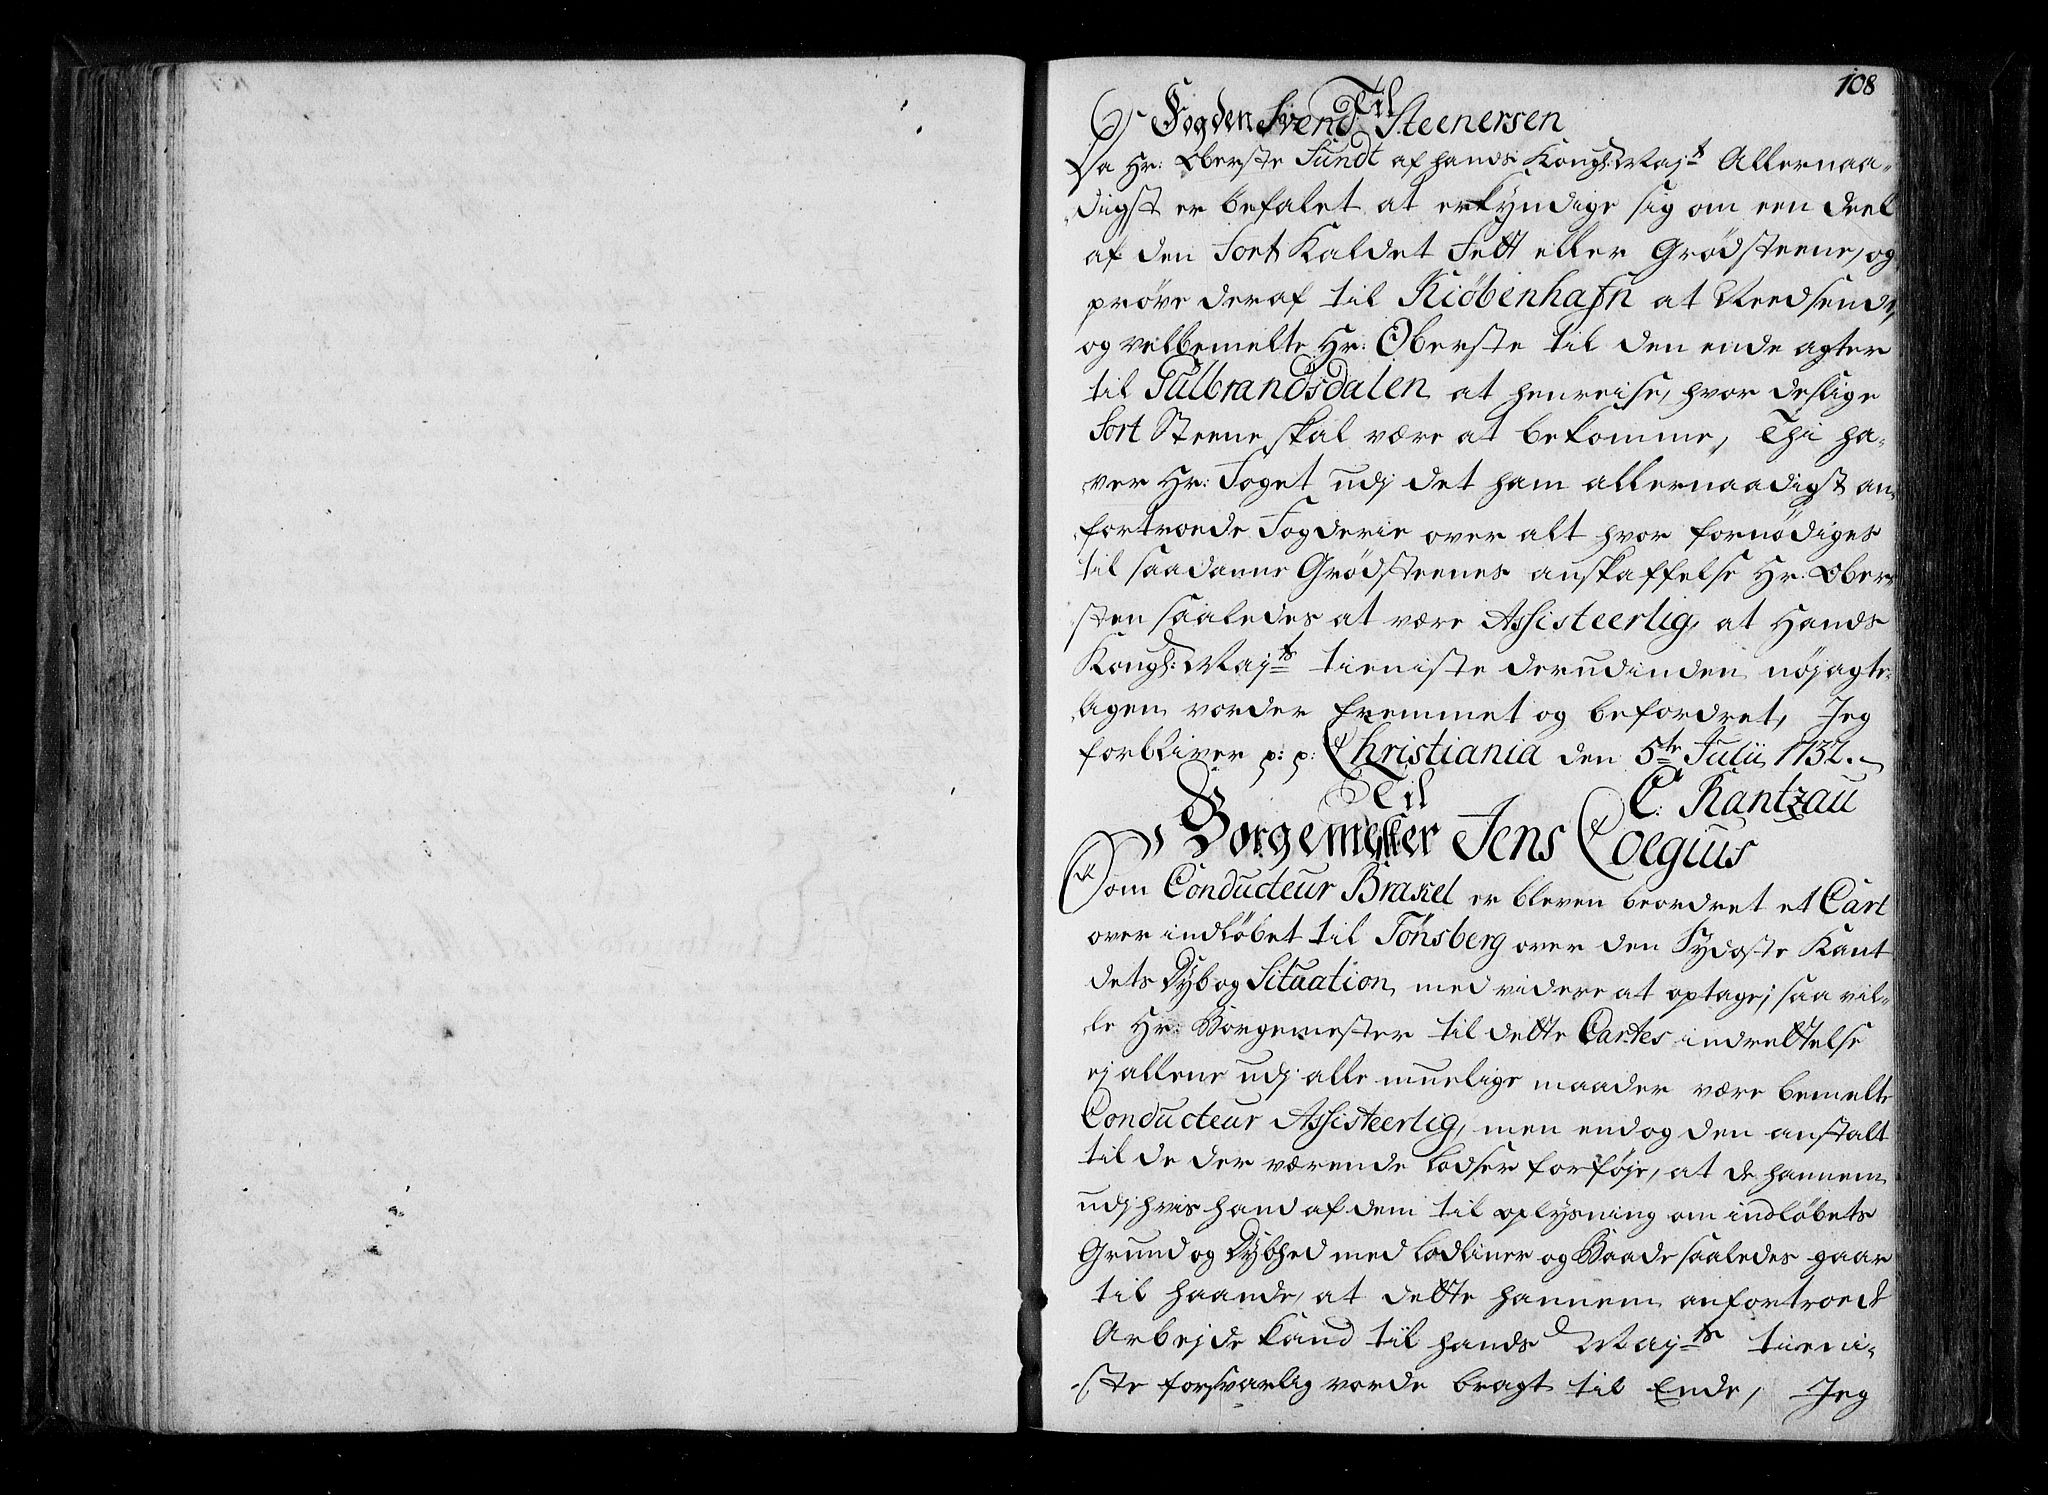 108
Til
Fogden Svend Steenersen
Da Hr: Oberste Sundt af hands Kongl: Mayt Allernaa-
digst er befalet at erkyndige sig om een deel
af den Sort Kaldet Fett eller Grødsteene, og
prøve deraf til Kiøbenhafn at Needsende,
og velbemelte Hr: Oberste til den ende agter
til Gulbrandsdalen at henreise, hvor deslige
Sort Steene skal være at bekomme, Thi ha-
ver Hr: Foget udj det ham allernaadigst an-
fortroede Fogderie over alt hvor fornødiges
til saadanne Grødsteenes anskaffelse Hr: Ober-
sten saaledes at være Assisteerlig, at Hands
Kongl: Mayts tieniste derudinden nøjagte-
ligen vorder fremmet og befordret, Jeg
forbliver p: p: Christiania den 5te Julii 1732.
C: Rantzau
Til
Borgemester Jens Coegius
Som Conducteur Brasel er bleven beordret et Cart
over indløbet til Tønsberg over den Sydoste Kant
dets Dyb og Situation, med videre at optage; saa vil-
le Hr: Borgemester til dette Cartes indrettelse
ej allene udj alle muelige maader være bemelte
Conducteur Assisteerlig, men endog den anstalt
til de der værende Lodser forføje, at de hannem
udj hvis hand af dem til oplysning om indløbets
Grund og Dybhed med Lodliner og Baade saaledes gaar
til haande, at dette hannem anfortroede
Arbejde kand til hands Mayts tieni-
ste forsvarlig vorde bragt til Ende, Jeg